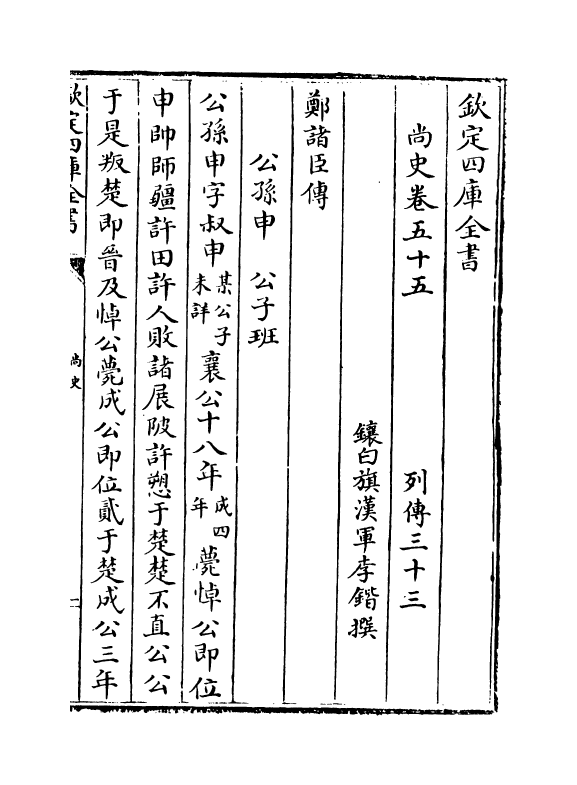 欽定四庫全書
尚史卷五十五 列傳三十三
鑲白旗漢軍李鍇撰
鄭諸臣傳
公孫申 公子班
公孫申字叔申某公子未詳襄公十八年成四年薨悼公即位
申帥師疆許田許人敗諸展陂許愬于楚楚不直公公
于是叛楚即晉及悼公薨成公即位貳于楚成公三年
欽定四庫全書
尚史